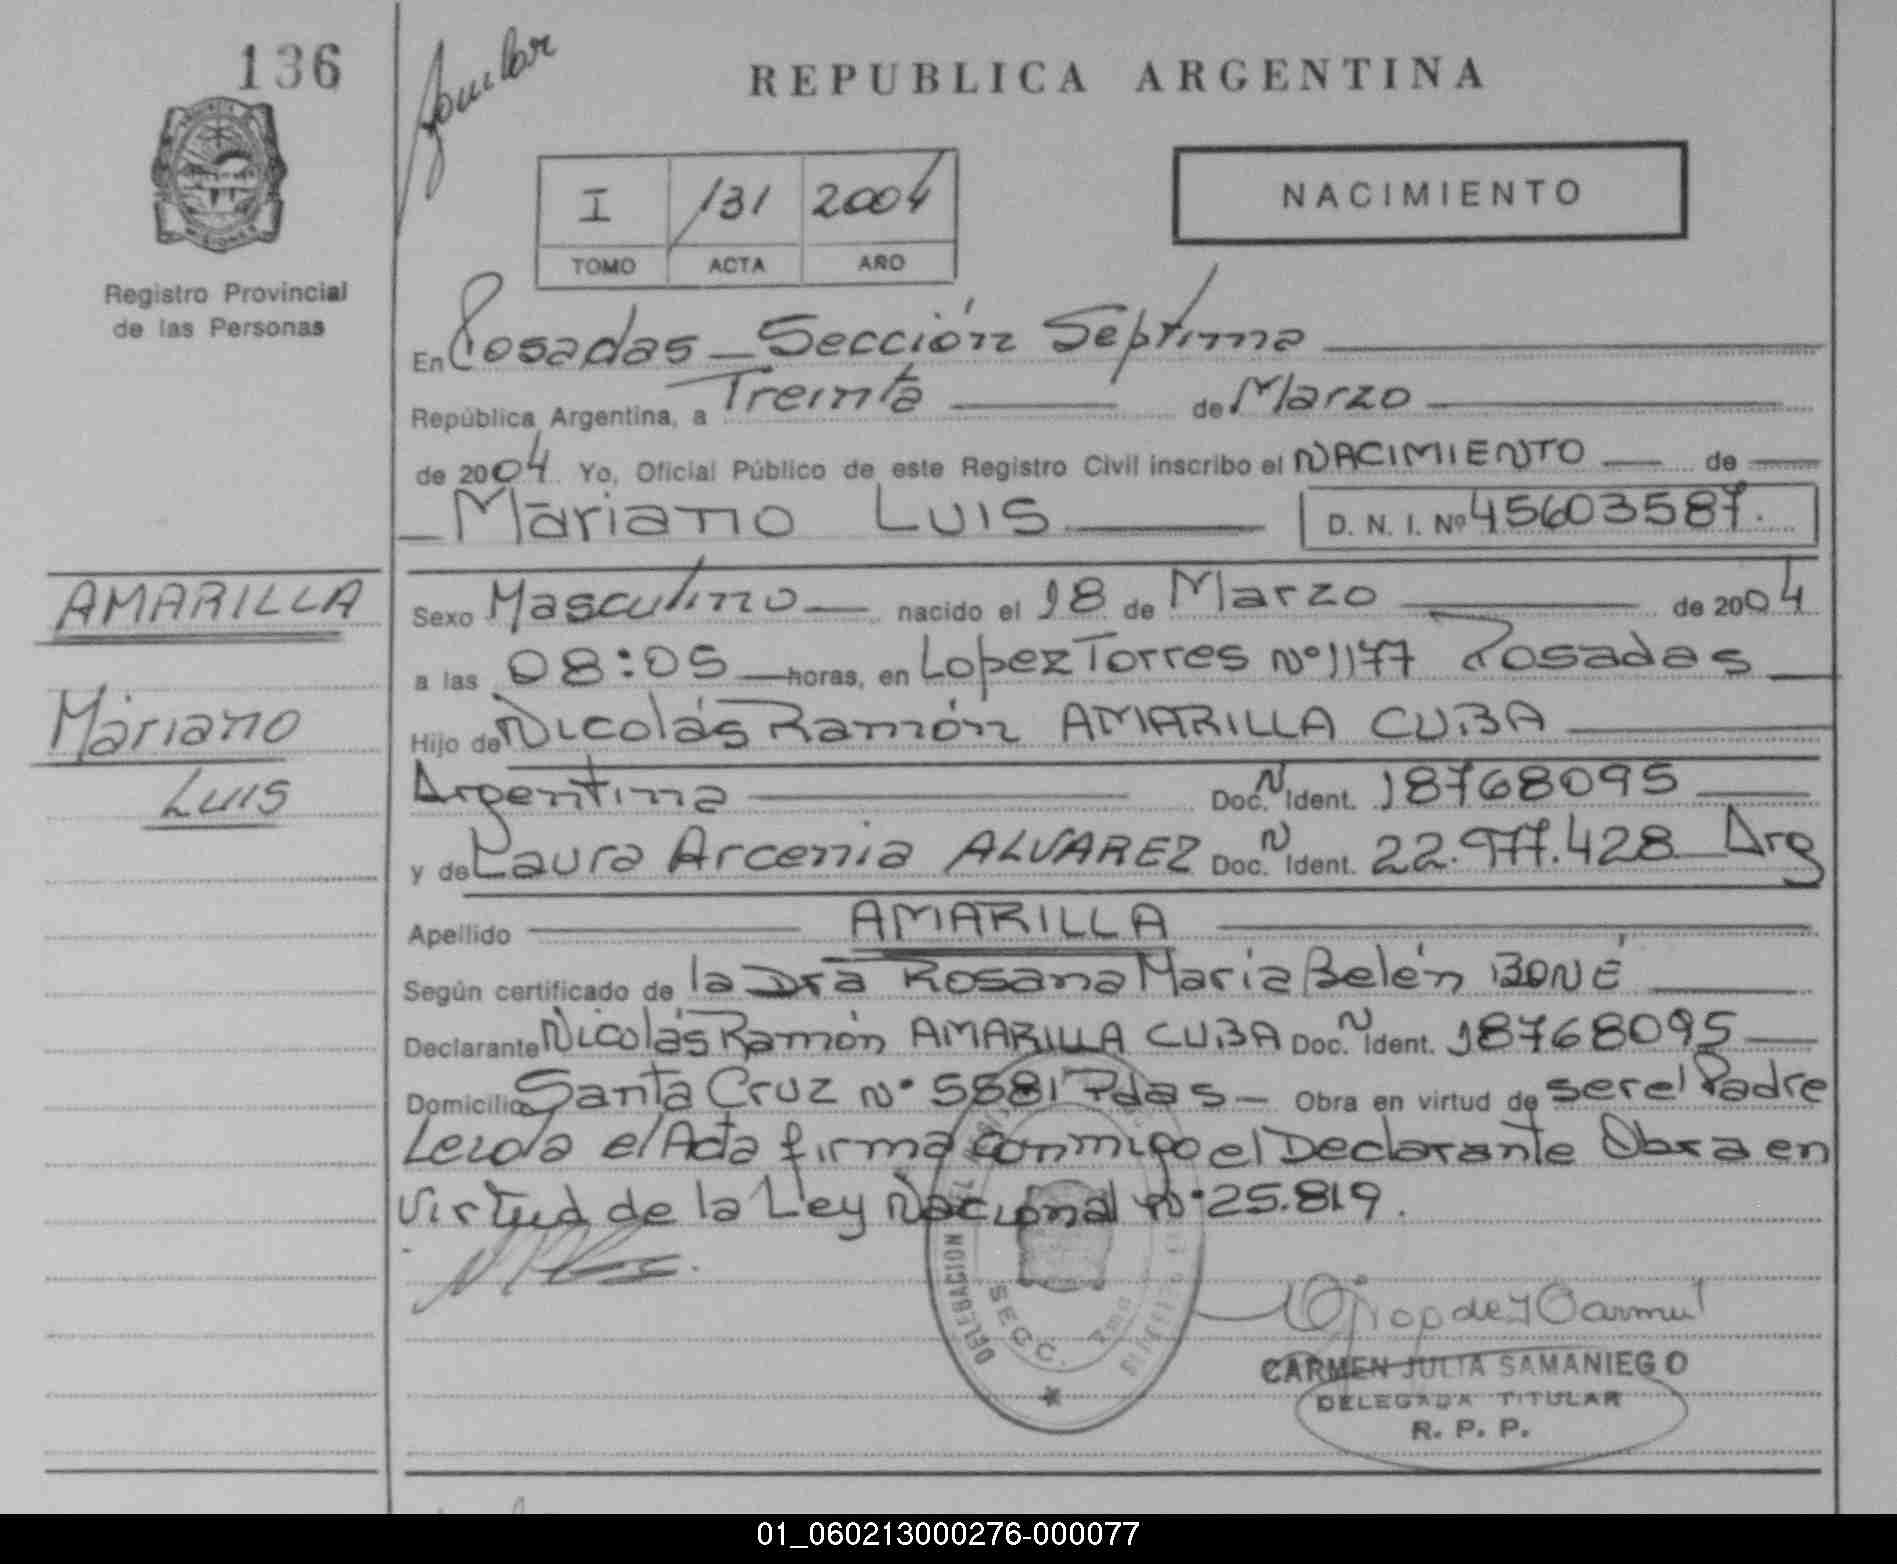 136
REPUBLICA ARGENTINA
I /131 2004
TOMO ACTA AÑO
NACIMIENTO
MISIONES
Registro Provincial
de las Personas
En Posadas - Sección Septima
República Argentina, a Treinta de Marzo
de 2004 Yo, Oficial Público de este Registro Civil inscribo el NACIMIENTO de
Mariano LUIS D. N. I. Nº 45603587.
AMARILLA
Mariano
Luis
Sexo Masculino nacido el 18 de Marzo de 2004
a las 08:05 horas, en Lopez Torres Nº 1177 Posadas
Hijo de Nicolás Ramón AMARILLA CUBA
Argentina Doc. N Ident. 18768095
y de Laura Arcenia ALVAREZ Doc. N Ident. 22.977.428 Arg
Apellido AMARILLA
Según certificado de la Dra Rosana Maria Belén BONÉ
Declarante Nicolás Ramón AMARILLA CUBA Doc. N Ident. 18768095
Domicilio Santa Cruz Nº 5581 Pdas - Obra en virtud de ser el Padre
Leida el Acta firma conmigo el Declarante Obra en
virtud de la Ley Nacional Nº 25.819.
DELEGACION DEL
SECC. 7ma
CARMEN JULIA SAMANIEGO
DELEGADA TITULAR
R. P. P.
01_060213000276-000077